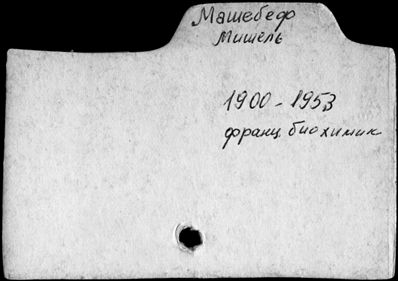 Машебеф
Мишель
1900-1953
франц. биохимик